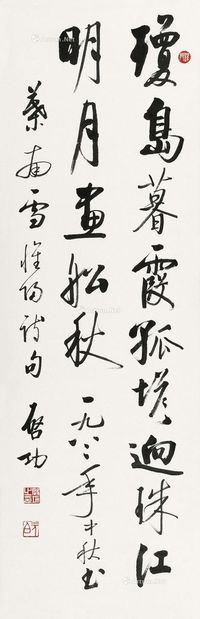 瓊島暮霞孤塔迥珠江
明月畫船秋 一九八二年中秋書
葉南雪詩句 啓功